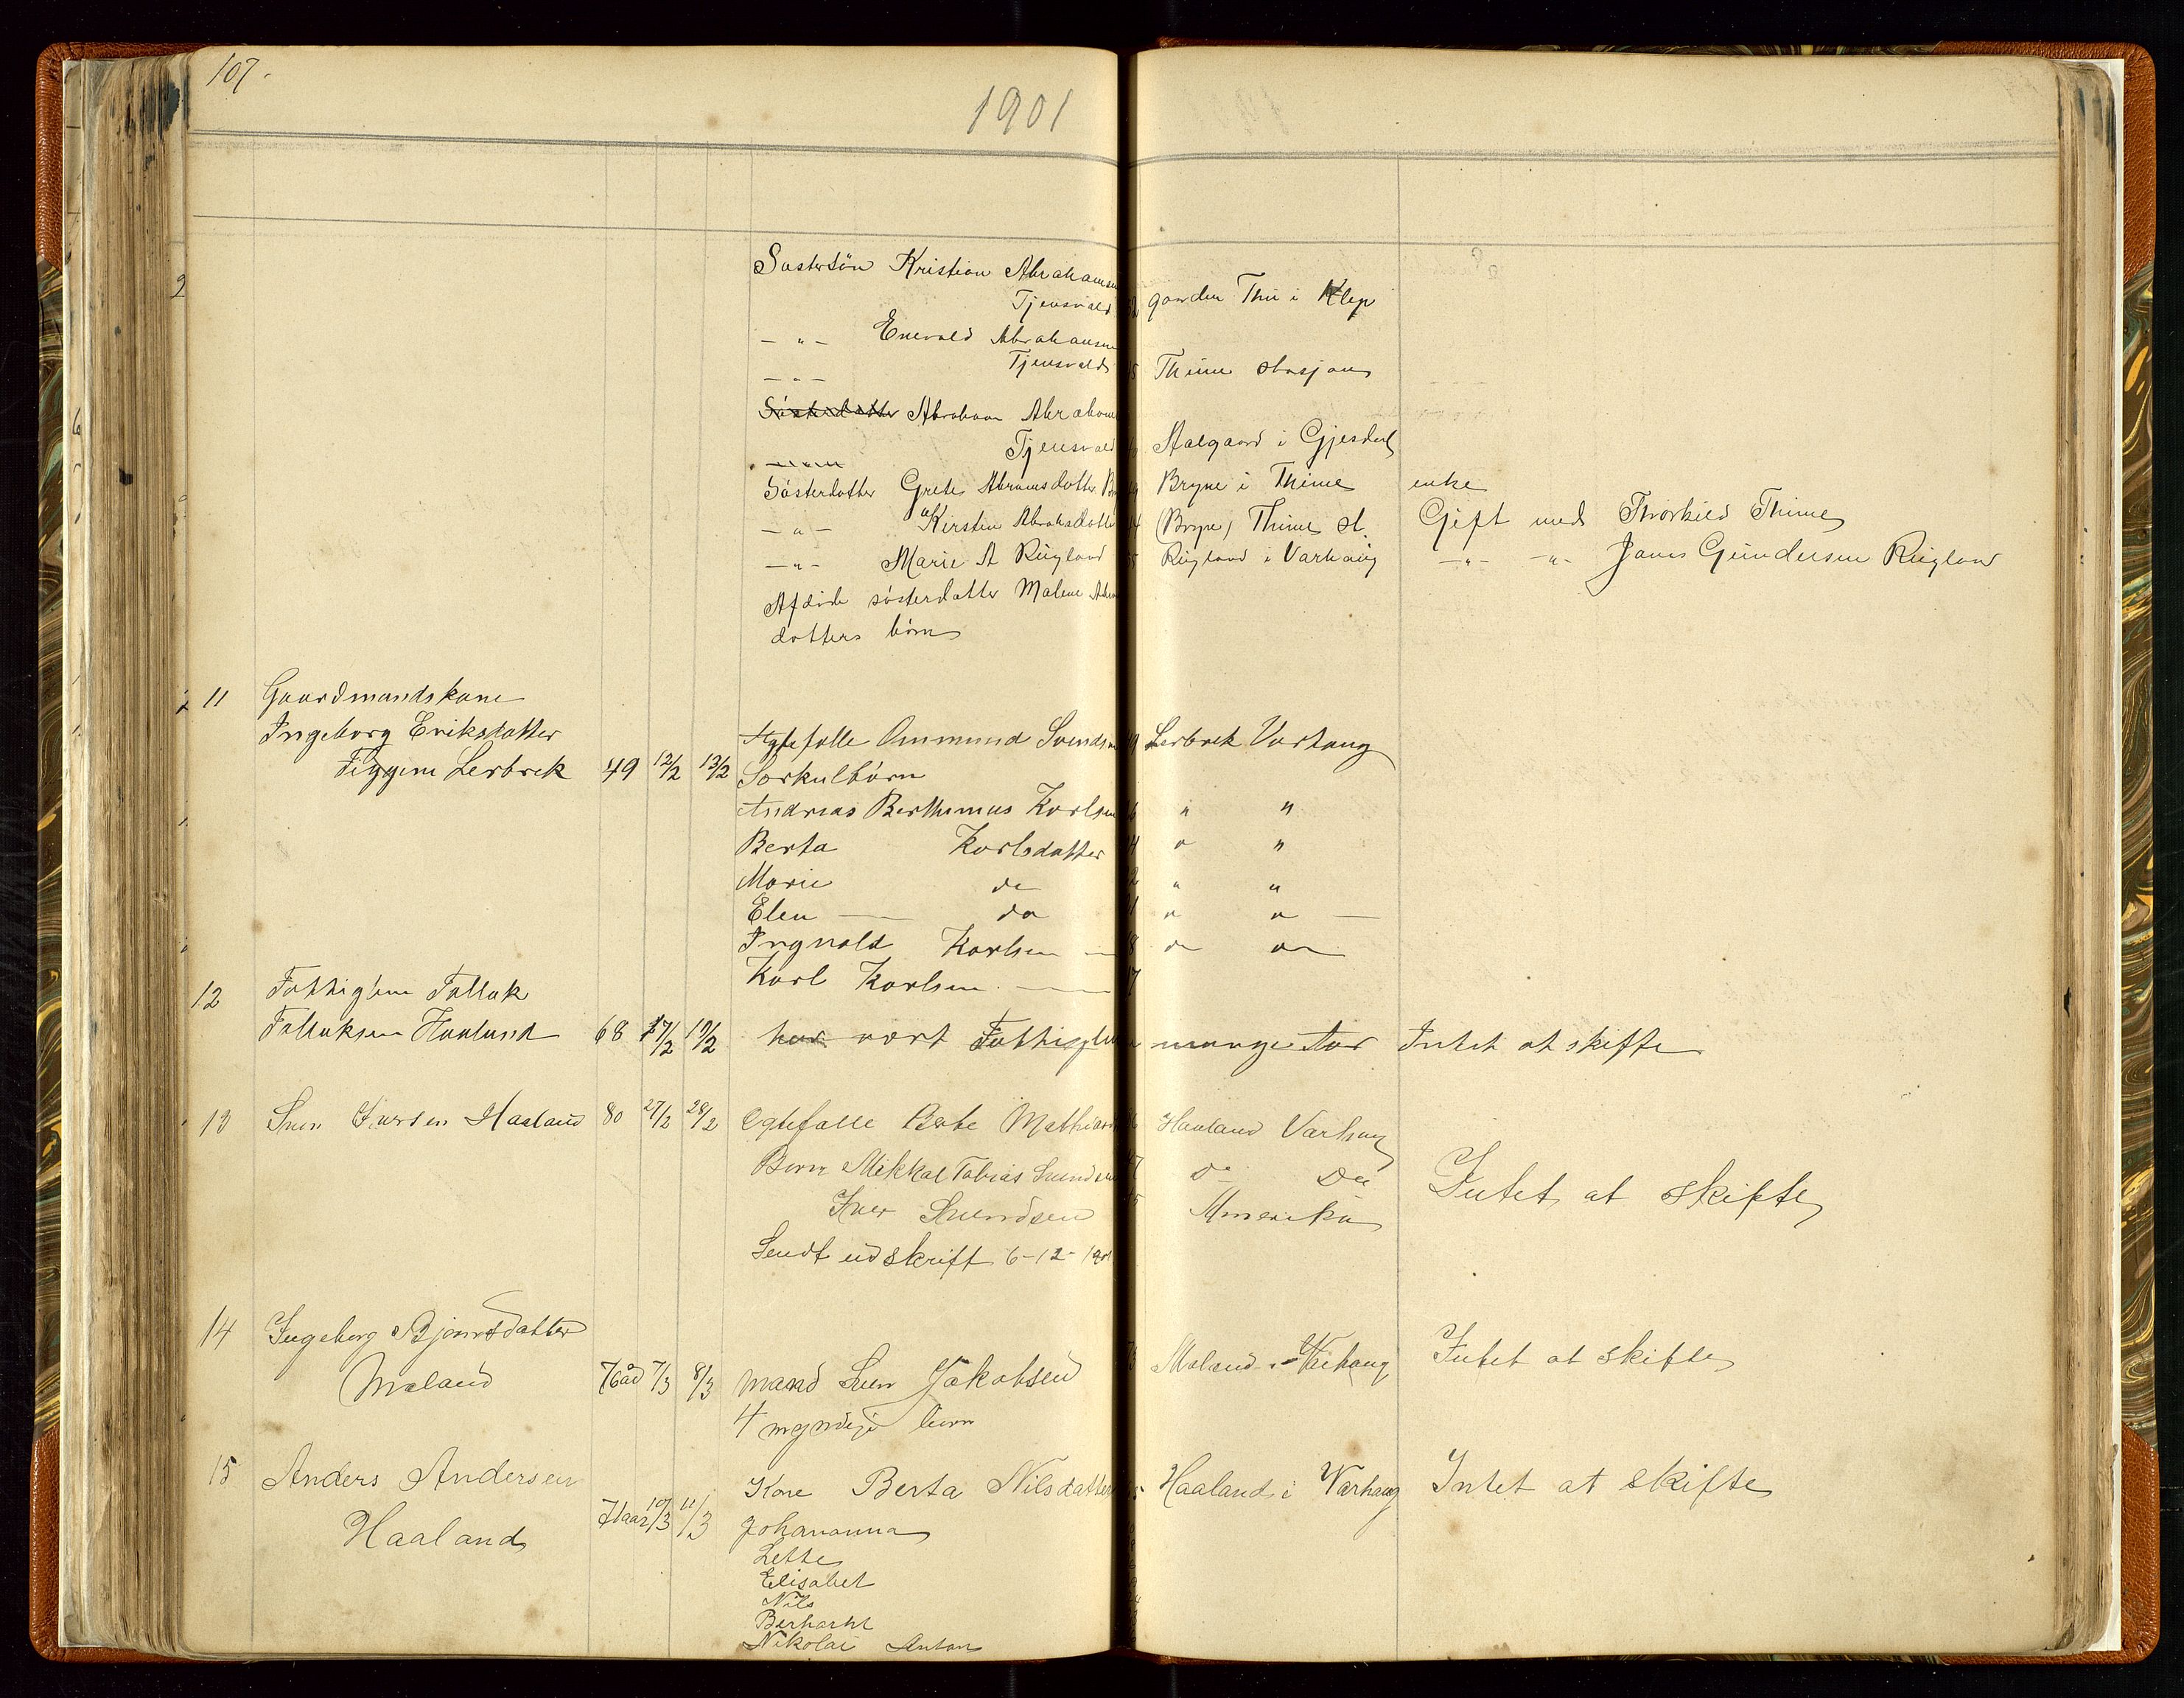 107.
1901
Søstersøn Kristian Abrahamsen
Tjensvold gaarden Thu i Klep
— " — Enevald Abrahamsen
Tjensvold Thime stasjon
— " —
Søsterdatter Abraham Abraham
Tjensvold Aalgaard i Gjesdal
Søsterdatter Grete Abramsdatter Bryne i Thime enke
— " — Kirsten Abrahsdatter (Bryne) Thime st. Gift med Thorkild Thime
— " — Marie A Rügland Rügland i Varhaug — " — " — Jans Gundersen Rügland
Afdøde søsterdatter Malene
datters børn
11 Gaardmandskone
Ingeborg Eriksdatter Ægtefolle Ommund Svendsen Lerbrek Varhaug
Tiggem Lerbrek 49 12/2 13/2 Sørkulbørn
Andreas Berthinius Korlsen " "
Berta Korlsdatter " "
Marie do " "
Elen — do " " —
Ingvald Korlsen — " "
Korl Korlsen. —
12 Fattiglem Tollak
Tollaksen Haaland 68 17/2 19/2 har vært Fattiglem mange Aar Intet at skifte
13 Sven Iversen Haaland 80 27/2 28/2 Egtefalle Berte Mathias Haaland Varhaug
Børn Mikkal Tobias Svendsen Do Do Intet at skifte
Iver Svendsen Amerika
Sendt udskrift 6-12-1901
14 Ingeborg Bjørnsdatter
Moland 76 år 7/3 8/3 mand Sven Jakobsen Moland i Varhaug Intet at skifte
4 myndige børn
15 Anders Andersen Kone Berta Nilsdatter Haaland i Varhaug Intet at skifte
Haaland 71 aar 10/3 11/3 Johananna
Lette
Elisabet
Nils
Berhart
Nikolai Anton